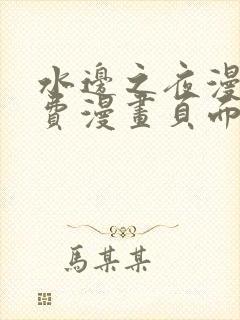 水邊之夜漫
費漫畫頁而
馬某某